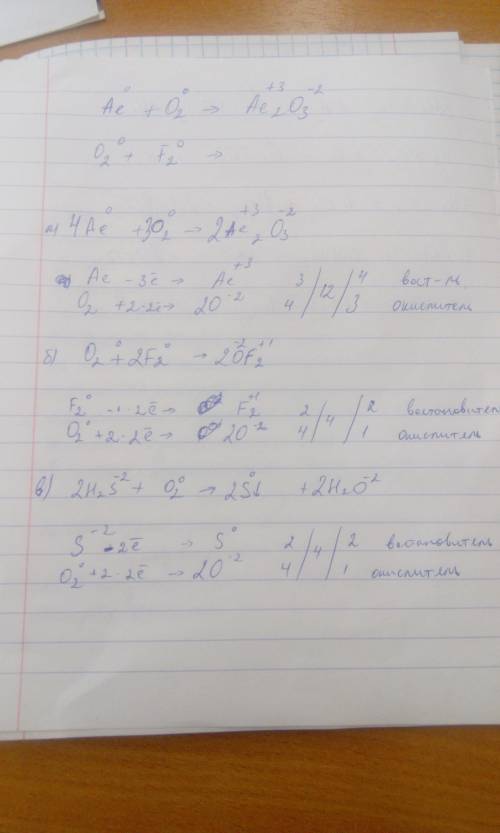 Al⁰ + O₂⁰ → Al₂⁺³O₃⁻²
O₂⁰ + F₂⁰ →
а) 4Al⁰ + 3O₂⁰ → 2Al₂⁺³O₃⁻²
Al - 3ē → Al⁺³ 3 / 12 / 4 вост-ль
O₂ + 2·2ē → 2O⁻² 4 / / 3 окислитель
б) O₂⁰ + 2F₂⁰ → 2O⁻²F₂⁺¹
F₂⁰ -1·2ē → F₂⁺¹ 2 / 4 / 2 востановитель
O₂⁰ + 2·2ē → 2O⁻² 4 / / 1 окислитель
в) 2H₂S⁻² + O₂⁰ → 2S⁰↓ + 2H₂O⁻²
S⁻² - 2ē → S⁰ 2 / 4 / 2 востановитель
O₂⁰ + 2·2ē → 2O⁻² 4 / / 1 окислитель